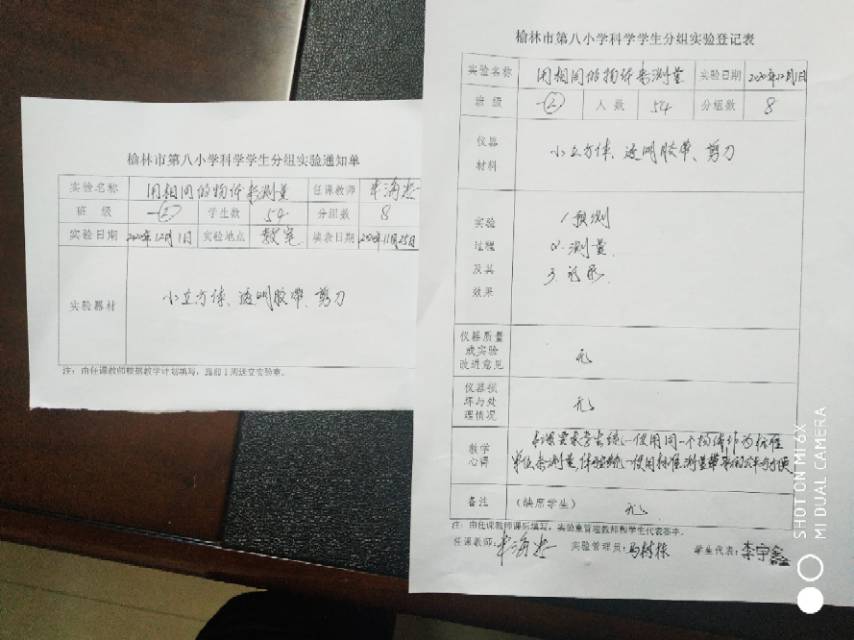 榆林市第八小学科学学生分组实验通知单
实验名称 用相同的物体来测量 任课教师
班 级 一(2) 学生数 54 分组数 8
实验日期 2020年12月1日 实验地点 教室 填表日期 2020年11月25日
实验器材 小立方体、透明胶带、剪刀
注:由任课教师根据教学计划填写,提前1周送交实验室。
榆林市第八小学科学学生分组实验登记表
实验名称 用相同的物体来测量 实验日期 2020年12月1日
班 级 一(2) 人 数 54 分组数 8
仪器
材料
小立方体、透明胶带、剪刀
实验
过程
及其
效果
1.预测
2.测量
3.
仪器质量
或实验
改进意见
无
仪器损
坏与处
理情况
无
教学
心得
本课要求学生统一使用同一个物体作为标准
单位来测量,体验统一使用标准测量单
备注 (缺席学生) 无
注:由任课教师课后填写,实验室管理教师和学生代表签字。
任课教师: 实验管理员: 学生代表:李宇鑫
SHOT ON MI 6X
MI DUAL CAMERA